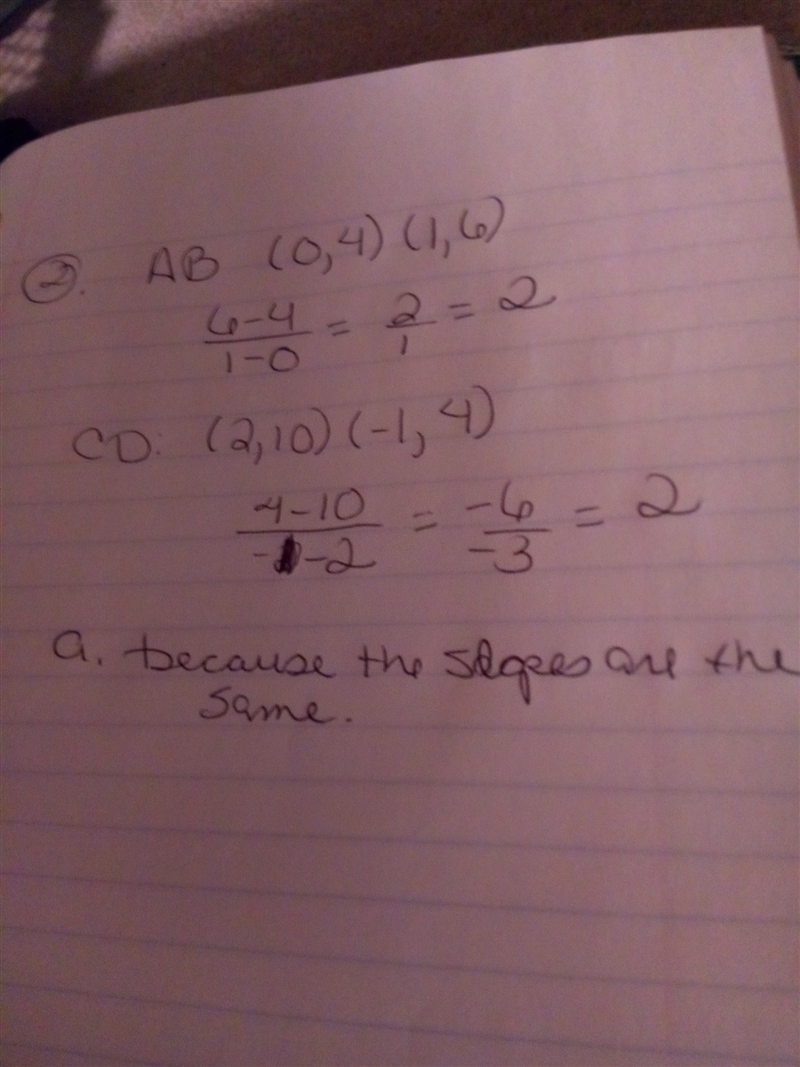 2. AB (0,4) (1,6)
6-4/1-0 = 2/1 = 2
CD: (2,10) (-1, 4)
4-10/-1-2 = -6/-3 = 2
a. because the slopes are the
same.